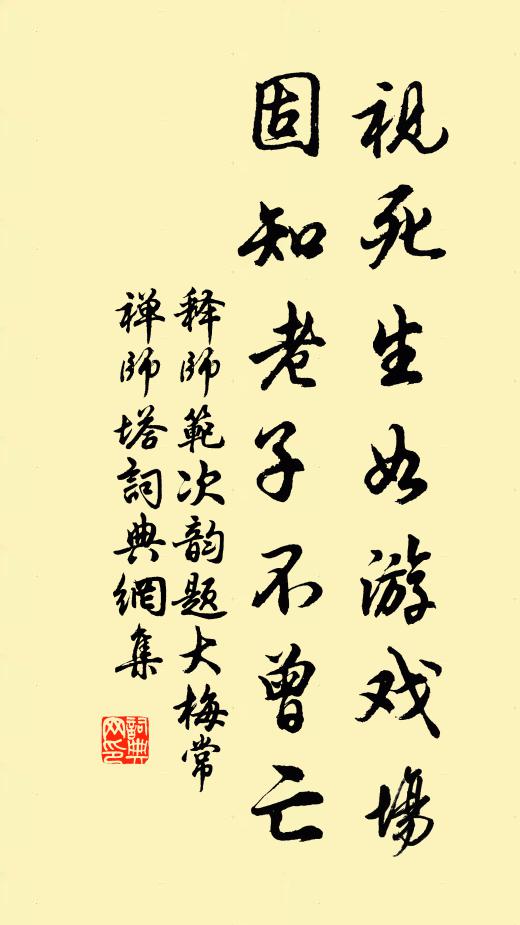 視死生如游戏場
固知老子不曾亡
释師範次韵题大梅常
禅師塔詞典網集
詞典
网印